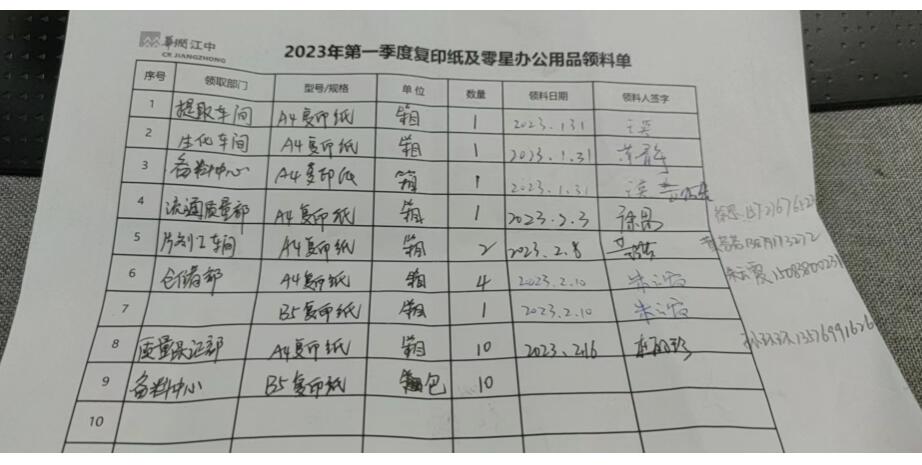 華潤江中
CR JIANGZHONG
2023年第一季度复印纸及零星办公用品领料单
序号 领取部门 型号/规格 单位 数量 领料日期 领料人签字
1 提取车间 A4复印纸 箱 1 2023.1.31
2 生化车间 A4复印纸 箱 1 2023.1.31
3 备料中心 A4复印纸 箱 1 2023.1.31
4 流通质量部 A4复印纸 箱 1 2023.2.3
5 片剂工车间 A4复印纸 箱 2 2023.2.8
6 仓储部 A4复印纸 箱 4 2023.2.10 朱云霞
7 B5复印纸 箱 1 2023.2.10 朱云霞
8 质量保证部 A4复印纸 箱 10 2023.2.16
9 备料中心 B5复印纸 包 10
10